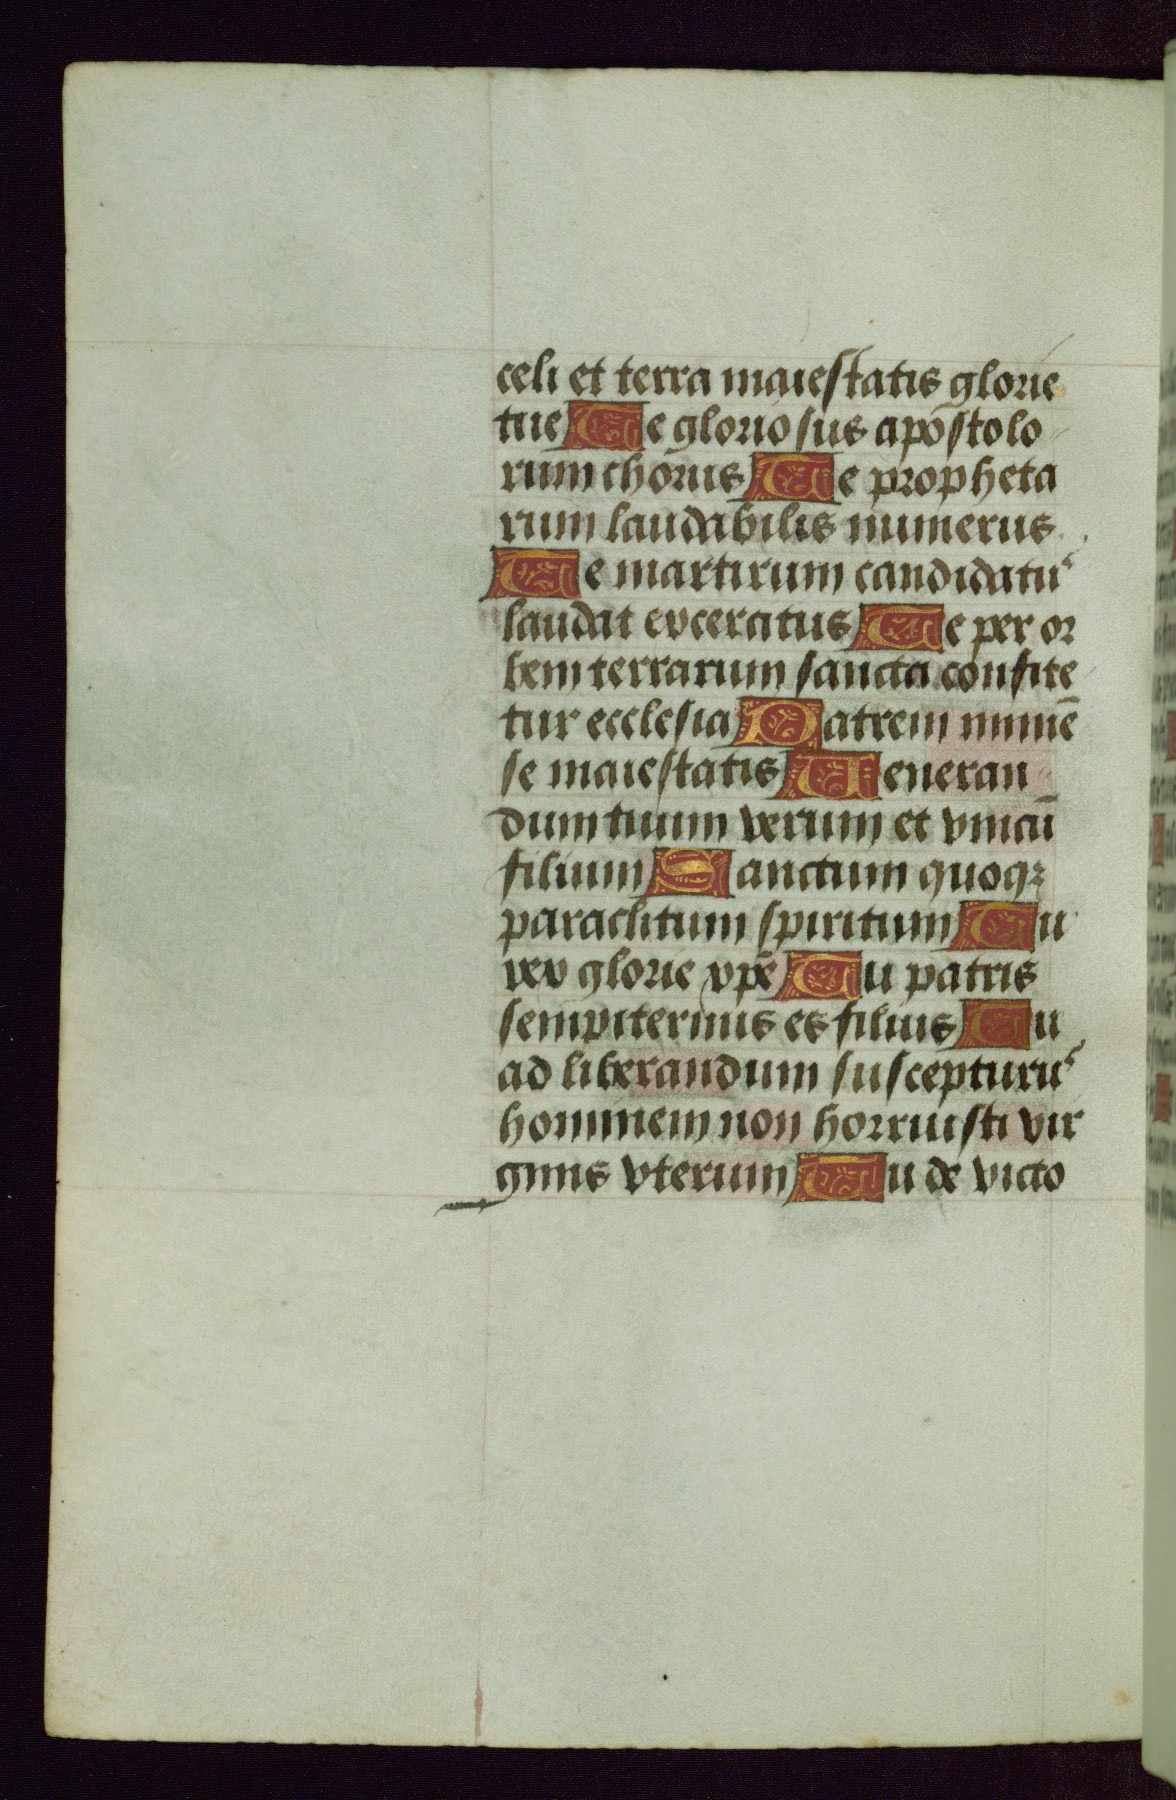 celi et terra maiestatis glorie
tue Te gloriosus apostolo
rum chorus Te propheta
rum laudabilis numerus
Te martirum candidatu⁹
laudat exceratus Te per or
bem terrarum sancta confite
tur ecclesia Patrem nimmē
se maiestatis Ueneran
dum tuum verum et vnicū
filium Sanctum quoqꝫ
paraclitum spiritum Tu
rex glorie xp̄e Tu patris
sempiternus es filius Tu
ad liberandum suscepturu⁹
hominem non horruisti vir
ginis vterum Tu de victo